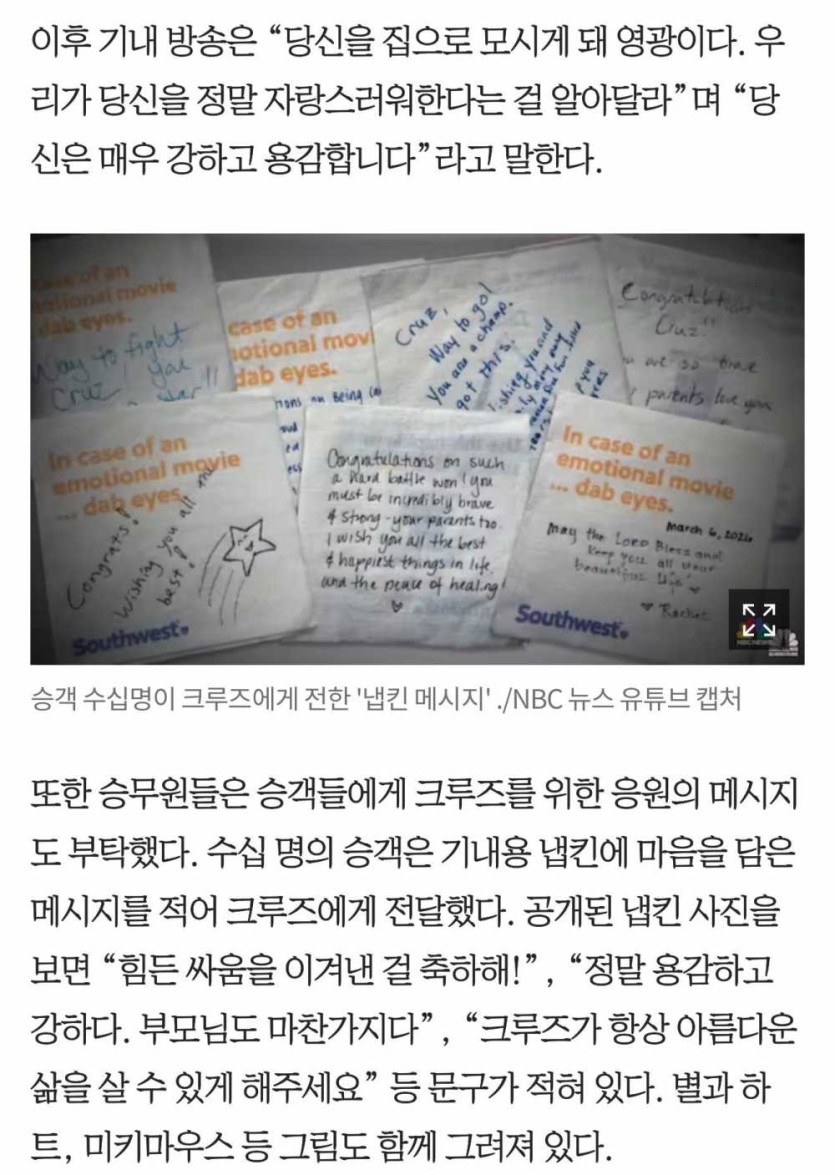 이후 기내 방송은 “당신을 집으로 모시게 돼 영광이다. 우
리가 당신을 정말 자랑스러워한다는 걸 알아달라”며 “당
신은 매우 강하고 용감합니다”라고 말한다.
case of an
emotional movie
dab eyes.
Way to fight
Cruz, you
case of an
otional movi
dab eyes.
ons on Being
Cruz,
Way to go!
You are a champ.
got this.
ishing you and
Congratulations
Cruz!!
are so brave
parents love you
In case of an
emotional movie
... dab eyes.
Congrats!
Wishing you all the
best!
Southwest
Congratulations on such
a hard battle won! You
must be incredibly brave
& strong - your parents too.
I wish you all the best
& happiest things in life,
and the peace of healing!
In case of an
emotional movie
... dab eyes.
March 6, 2026
May the Lord Bless and
keep you all your
beautiful life
Rachel
Southwest
승객 수십명이 크루즈에게 전한 '냅킨 메시지' ./NBC 뉴스 유튜브 캡처
또한 승무원들은 승객들에게 크루즈를 위한 응원의 메시지
도 부탁했다. 수십 명의 승객은 기내용 냅킨에 마음을 담은
메시지를 적어 크루즈에게 전달했다. 공개된 냅킨 사진을
보면 “힘든 싸움을 이겨낸 걸 축하해!”, “정말 용감하고
강하다. 부모님도 마찬가지다”, “크루즈가 항상 아름다운
삶을 살 수 있게 해주세요” 등 문구가 적혀 있다. 별과 하
트, 미키마우스 등 그림도 함께 그려져 있다.